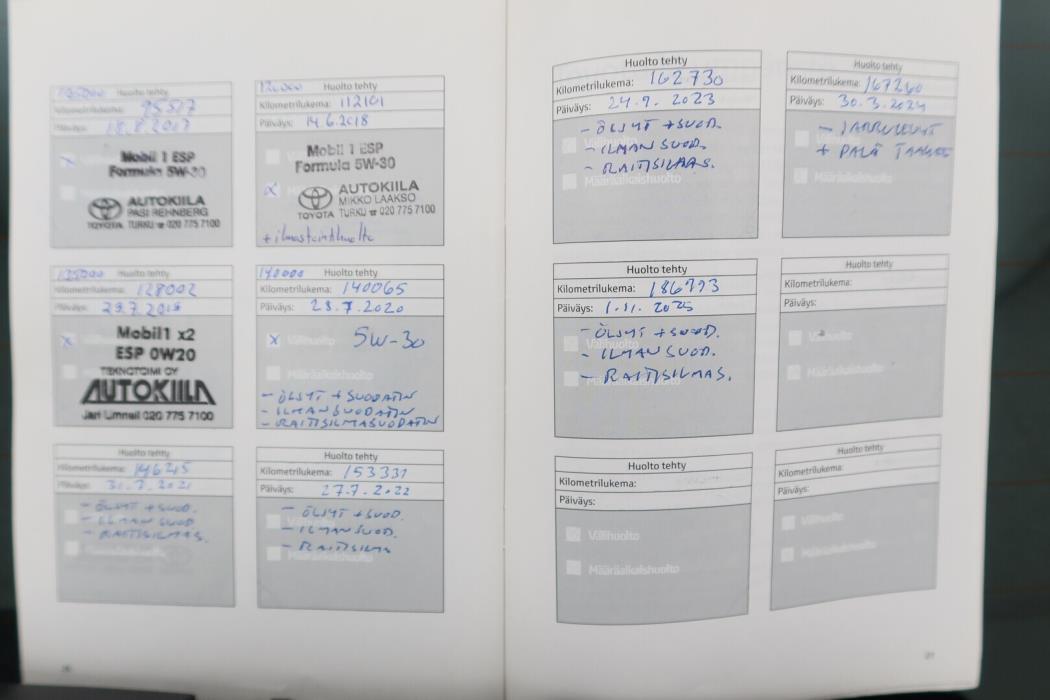 Huolto tehty
Kilometrilukema: 95517
Päiväys: 18.8.2017
Mobil 1 ESP
Formula 5W-30
AUTOKIILA
PASI RENNBERG
TOYOTA TURKU ☎ 020 775 7100
120000 Huolto tehty
Kilometrilukema: 112101
Päiväys: 14.6.2018
Mobil 1 ESP
Formula 5W-30
AUTOKIILA
MIKKO LAAKSO
TOYOTA TURKU ☎ 020 775 7100
+ ilmastointihuolto
135000 Huolto tehty
Kilometrilukema: 128002
Päiväys: 29.7.2019
Mobil1 x2
ESP 0W20
TEKNOTOIMI OY
AUTOKIILA
Jari Limnell 020 775 7100
140000 Huolto tehty
Kilometrilukema: 140065
Päiväys: 23.7.2020
Välihuolto 5W-30
Määräaikaishuolto
- ÖLJYT + SUODATIN
- ILMANSUODATIN
- RAITISILMASUODATIN
Huolto tehty
Kilometrilukema: 146245
Päiväys: 31.7.2021
- ÖLJYT + SUOD.
- ILMAN SUOD.
- RAITISILMAS.
Huolto tehty
Kilometrilukema: 153331
Päiväys: 27.7.2022
- ÖLJYT + SUOD.
- ILMAN SUOD.
- RAITISILMAS
Määräaikaishuolto
Huolto tehty
Kilometrilukema: 162730
Päiväys: 24.9.2023
- ÖLJYT + SUOD.
- ILMAN SUOD.
- RAITISILMAS.
Määräaikaishuolto
Huolto tehty
Kilometrilukema: 167240
Päiväys: 30.3.2024
- JARRULEVYT
+ PALAT TAAKSE
Huolto tehty
Kilometrilukema: 186793
Päiväys: 1.11.2025
- ÖLJYT + SUOD.
- ILMAN SUOD.
- RAITISILMAS.
Huolto tehty
Kilometrilukema:
Päiväys:
Välihuolto
Määräaikaishuolto
Huolto tehty
Kilometrilukema:
Päiväys:
Välihuolto
Määräaikaishuolto
Huolto tehty
Kilometrilukema:
Päiväys:
Välihuolto
Määräaikaishuolto